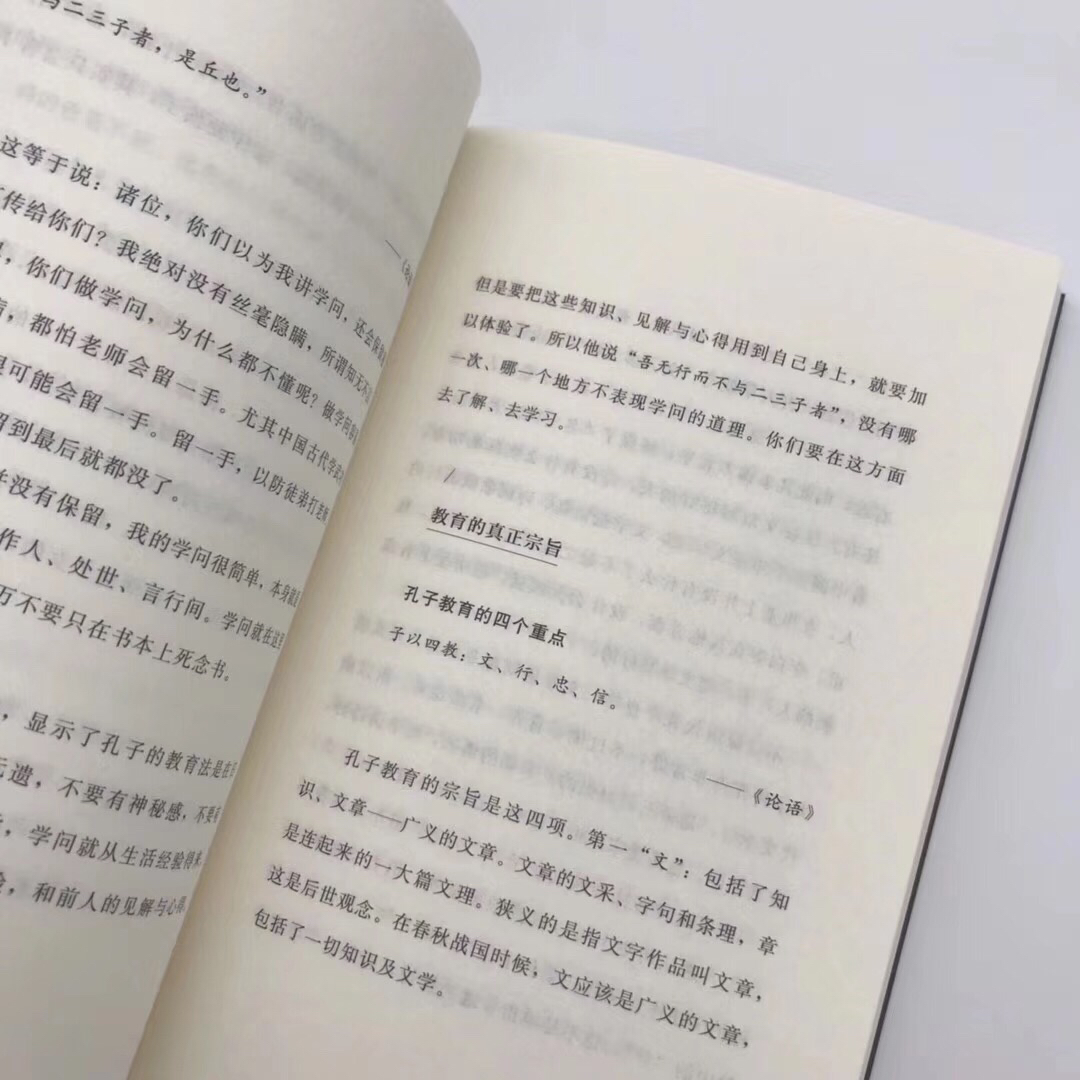 与二三子者，是丘也。”
——《论
这等于说：诸位，你们以为我讲学问，还会保
传给你们？我绝对没有丝毫隐瞒，所谓知无不
，你们做学问，为什么都不懂呢？做学问
，都怕老师会留一手。尤其中国古代学武
可能会留一手。留一手，以防徒弟打老师
留到最后就都没了。
并没有保留，我的学问很简单，本身就
作人、处世、言行间。学问就在这里
万不要只在书本上死念书。
，显示了孔子的教育法是在
无遗，不要有神秘感，不要
，学问就从生活经验得来
，和前人的见解与心得
但是要把这些知识、见解与心得用到自己身上，就要加
以体验了。所以他说“吾无行而不与二三子者”，没有哪
一次、哪一个地方不表现学问的道理。你们要在这方面
去了解、去学习。
/
教育的真正宗旨
孔子教育的四个重点
子以四教：文、行、忠、信。
——《论语》
孔子教育的宗旨是这四项。第一“文”：包括了知
识、文章——广义的文章。文章的文采、字句和条理，章
是连起来的一大篇文理。狭义的是指文字作品叫文章，
这是后世观念。在春秋战国时候，文应该是广义的文章，
包括了一切知识及文学。